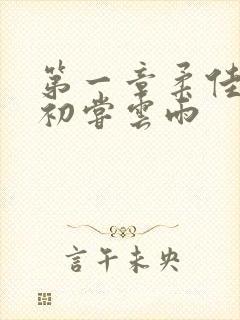 第一章柔佳
初嘗雲雨
言午未央